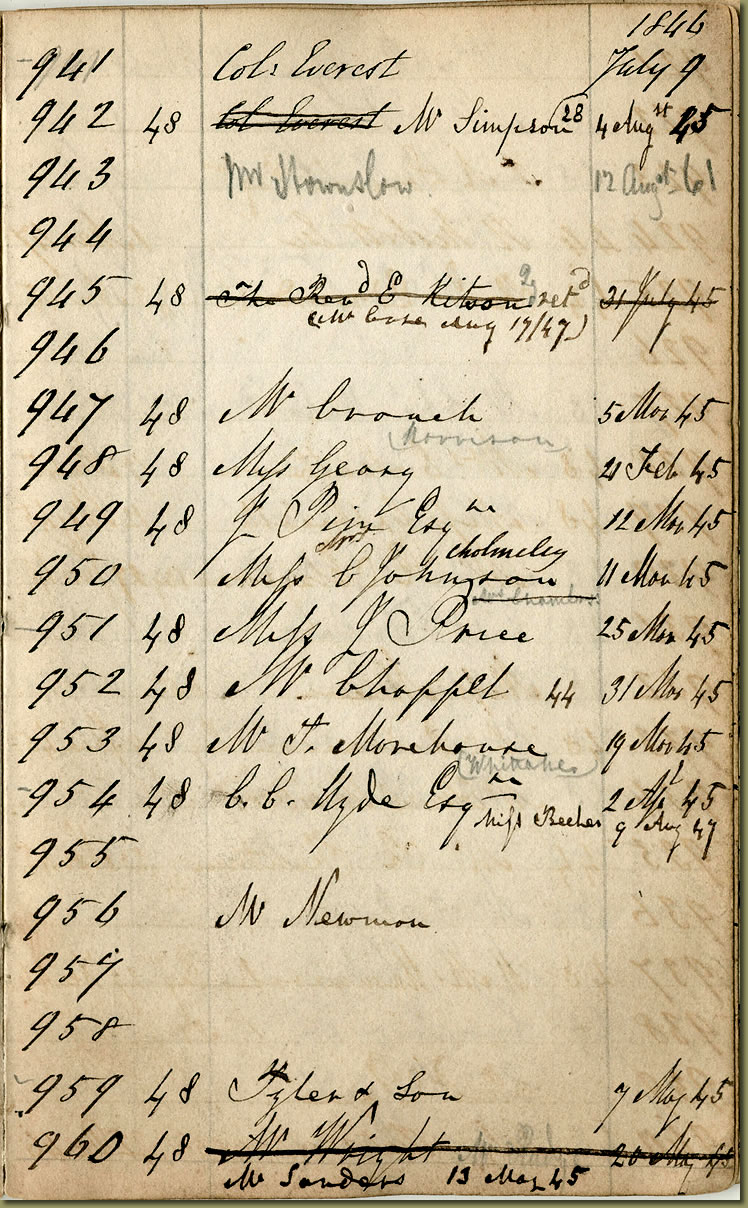 1846
941 Col: Everest July 9
942 48 Col Everest Mr Simpson 28 4 Augst 45
943 Mr Stownslow 12 Augst 61
944
945 48 The Revd E Kitson retd 31 July 45
(Mr Case Aug 17/47)
946
947 48 Mr Crouch 5 Mar 45
Morrison
948 48 Miss Geary 21 Feb 45
949 48 J Pim Esqre 12 Mar 45
Cholmeley
950 48 Miss C Johnson 11 Mar 45
Chambers
951 48 Miss J Price 25 Mar 45
952 48 Mr Chappell 44 31 Mar 45
953 48 Mr T. Morehouse 19 Mar 45
Whitaker
954 48 C. C. Hyde Esqre 2 Apl 45
Miss Beecher 9 Aug 47
955
956 Mr Newman
957
958
959 48 Tyler & Son 7 May 45
960 48 Mr Wright 20 May 45
Mr Sanders 13 May 45